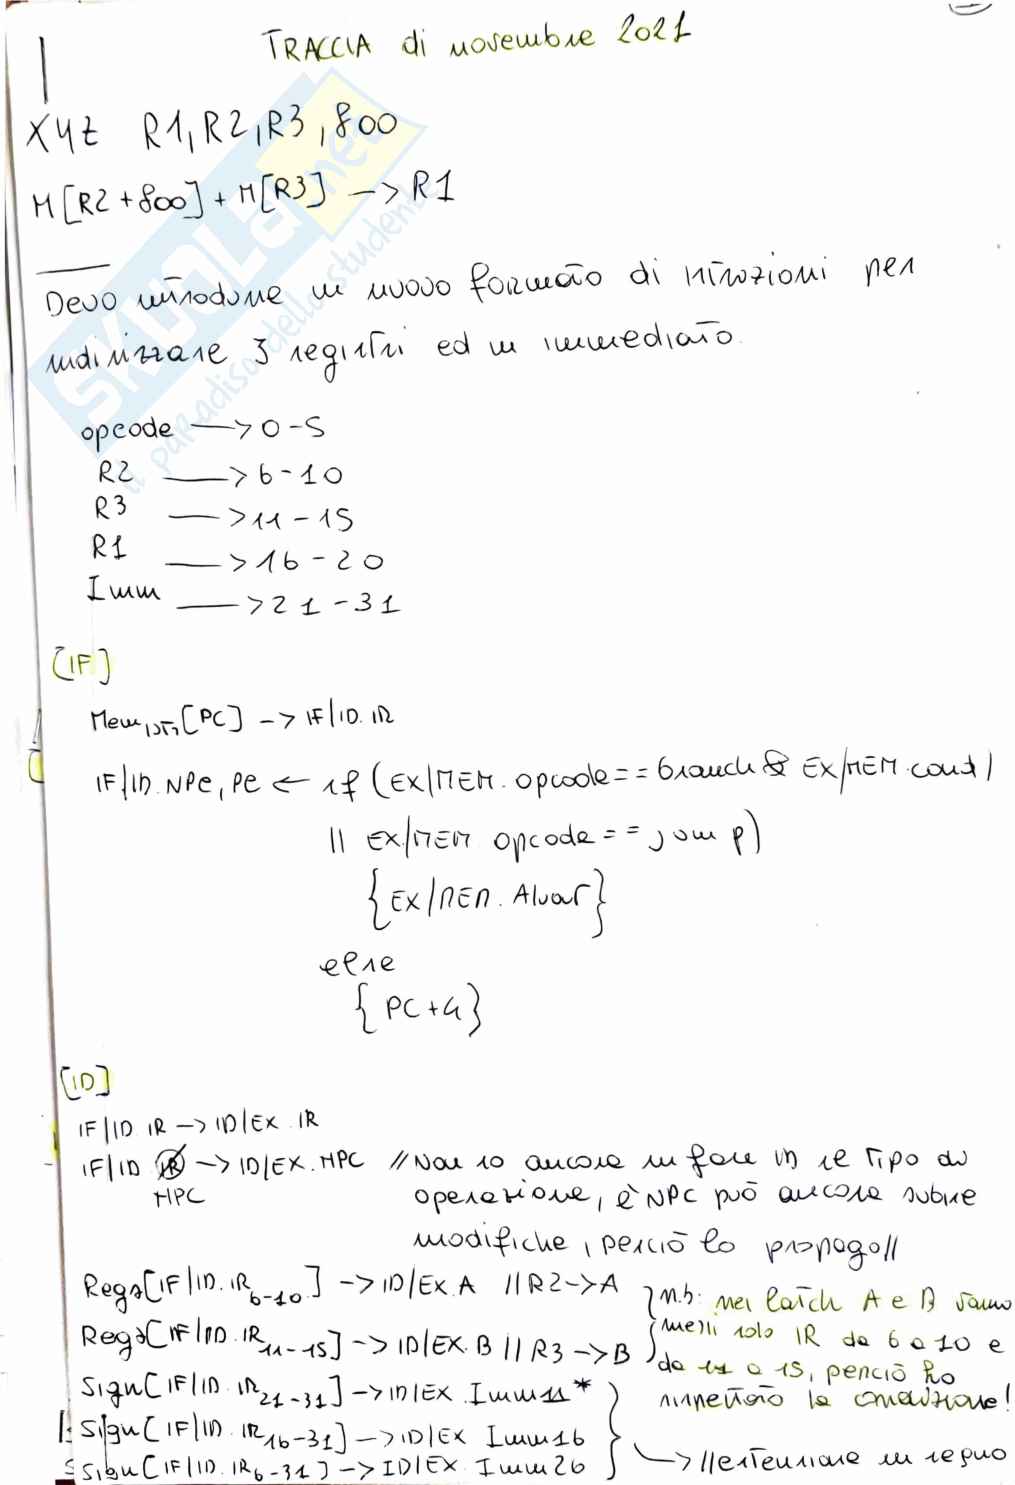 TRACCIA di novembre 2021
XYZ R1, R2, R3, 800
M[R2+800] + M[R3] -> R1
Devo introdurre un nuovo formato di istruzioni per
indirizzare 3 registri ed un immediato.
opcode -> 0-5
R2 -> 6-10
R3 -> 11-15
R1 -> 16-20
Imm -> 21-31
[IF]
Mem istr [PC] -> IF/ID.IR
IF/ID.NPC, PC <- if (EX/MEM.opcode == branch & EX/MEM.cond)
|| EX/MEM opcode == jump)
{EX/MEM.Aluout}
else
{PC+4}
[ID]
IF/ID.IR -> ID/EX.IR
IF/ID IR -> ID/EX.NPC // Non so ancora in fase ID se tipo di
NPC operazione, e NPC può ancora subire
modifiche, perciò lo propago//
Regs[IF/ID.IR 6-10] -> ID/EX.A // R2->A
Regs[IF/ID.IR 11-15] -> ID/EX.B // R3->B
n.b: nei latch A e B vanno
messi solo IR da 6 a 10 e
da 11 a 15, perciò ho
rispettato la condizione!
Sign[IF/ID.IR 21-31] -> ID/EX.Imm11 *
Sign[IF/ID.IR 16-31] -> ID/EX Imm16
Sign[IF/ID.IR 6-31] -> ID/EX.Imm26
-> //estensione in segno
SKUOLA.net
il paradiso dello studente